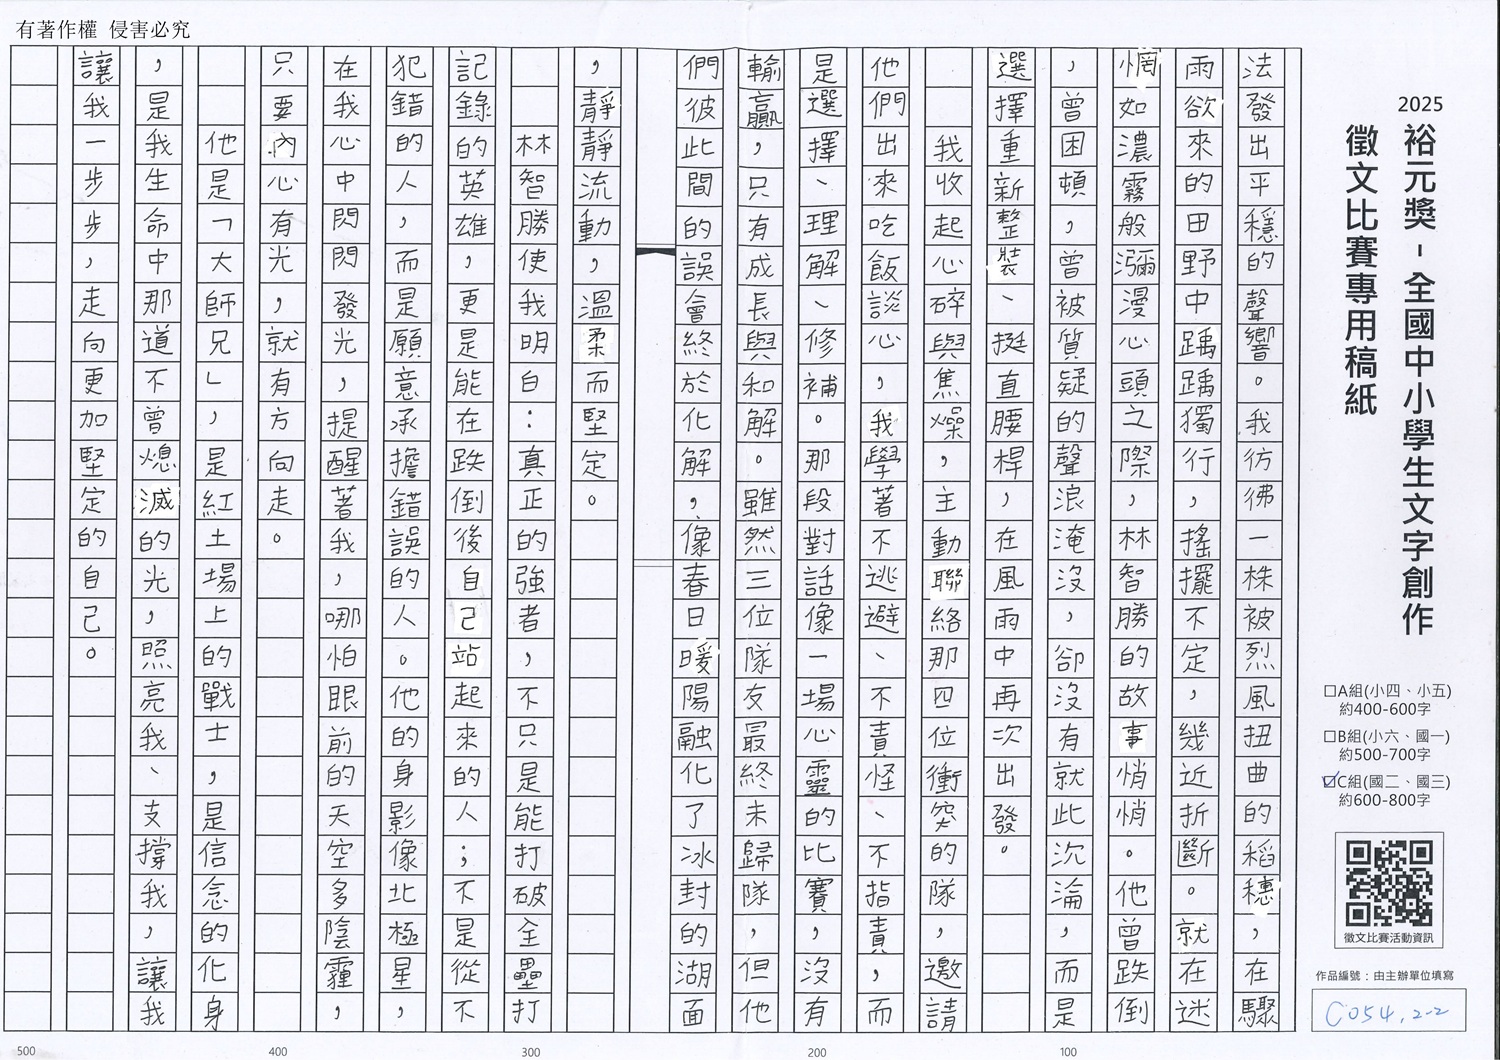 有著作權 侵害必究
2025
裕元獎-全國中小學生文字創作
徵文比賽專用稿紙
□A組(小四、小五)
約400-600字
□B組(小六、國一)
約500-700字
☑C組(國二、國三)
約600-800字
徵文比賽活動資訊
作品編號：由主辦單位填寫
C054.2-2
法發出平穩的聲響。我彷彿一株被烈風扭曲的稻穗，在驟
雨欲來的田野中踽踽獨行，搖擺不定，幾近折斷。就在迷
惘如濃霧般瀰漫心頭之際，林智勝的故事悄悄。他曾跌倒
，曾困頓，曾被質疑的聲浪淹沒，卻沒有就此沉淪，而是
選擇重新整裝、挺直腰桿，在風雨中再次出發。
我收起心碎與焦燥，主動聯絡那四位衝突的隊，邀請
他們出來吃飯談心，我學著不逃避、不責怪、不指責，而
是選擇、理解、修補。那段對話像一場心靈的比賽，沒有
輸贏，只有成長與和解。雖然三位隊友最終未歸隊，但他
們彼此間的誤會終於化解，像春日暖陽融化了冰封的湖面
，靜靜流動，溫柔而堅定。
林智勝使我明白：真正的強者，不只是能打破全壘打
記錄的英雄，更是能在跌倒後自己站起來的人；不是從不
犯錯的人，而是願意承擔錯誤的人。他的身影像北極星，
在我心中閃閃發光，提醒著我，哪怕眼前的天空多陰霾，
只要內心有光，就有方向走。
他是「大師兄」，是紅土場上的戰士，是信念的化身
，是我生命中那道不曾熄滅的光，照亮我、支撐我，讓我
讓我一步步，走向更加堅定的自己。
100
200
300
400
500